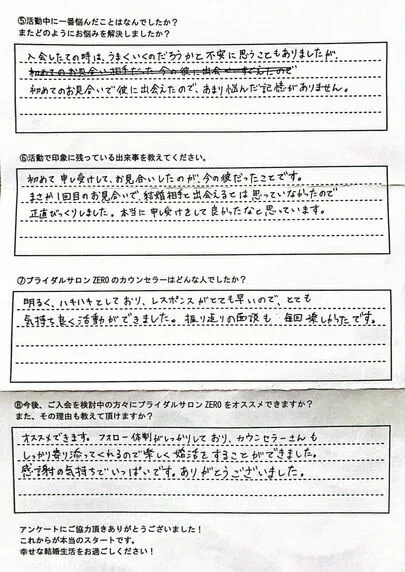 ⑤活動中に一番悩んだことはなんでしたか？
またどのようにお悩みを解決しましたか？
入会したての時は、うまくいくのだろうかと不安に思うこともありましたが、
初めてのお見合い相手だった今の彼に出会
初めてのお見合いで彼に出会えたので、あまり悩んだ記憶がありません。
⑥活動で印象に残っている出来事を教えてください。
初めて申し受けして、お見合いしたのが、今の彼だったことです。
まさか1回目のお見合いで、結婚相手と出会えるとは思っていなかったので
正直びっくりしました。本当に申し受けをして良かったなと思っています。
⑦ブライダルサロンZEROのカウンセラーはどんな人でしたか？
明るく、ハキハキとしており、レスポンスがとても早いので、とても
気持ち良く活動ができました。振り返りの面談も毎回楽しかったです。
⑧今後、ご入会を検討中の方々にブライダルサロンZEROをオススメできますか？
また、その理由も教えて頂けますか？
オススメできます。フォロー体制がしっかりしており、カウンセラーさんも
しっかり寄り添ってくれるので楽しく婚活をすることができました。
感謝の気持ちでいっぱいです。ありがとうございました。
アンケートにご協力頂きありがとうございました！
これからが本当のスタートです。
幸せな結婚生活をお過ごしください！